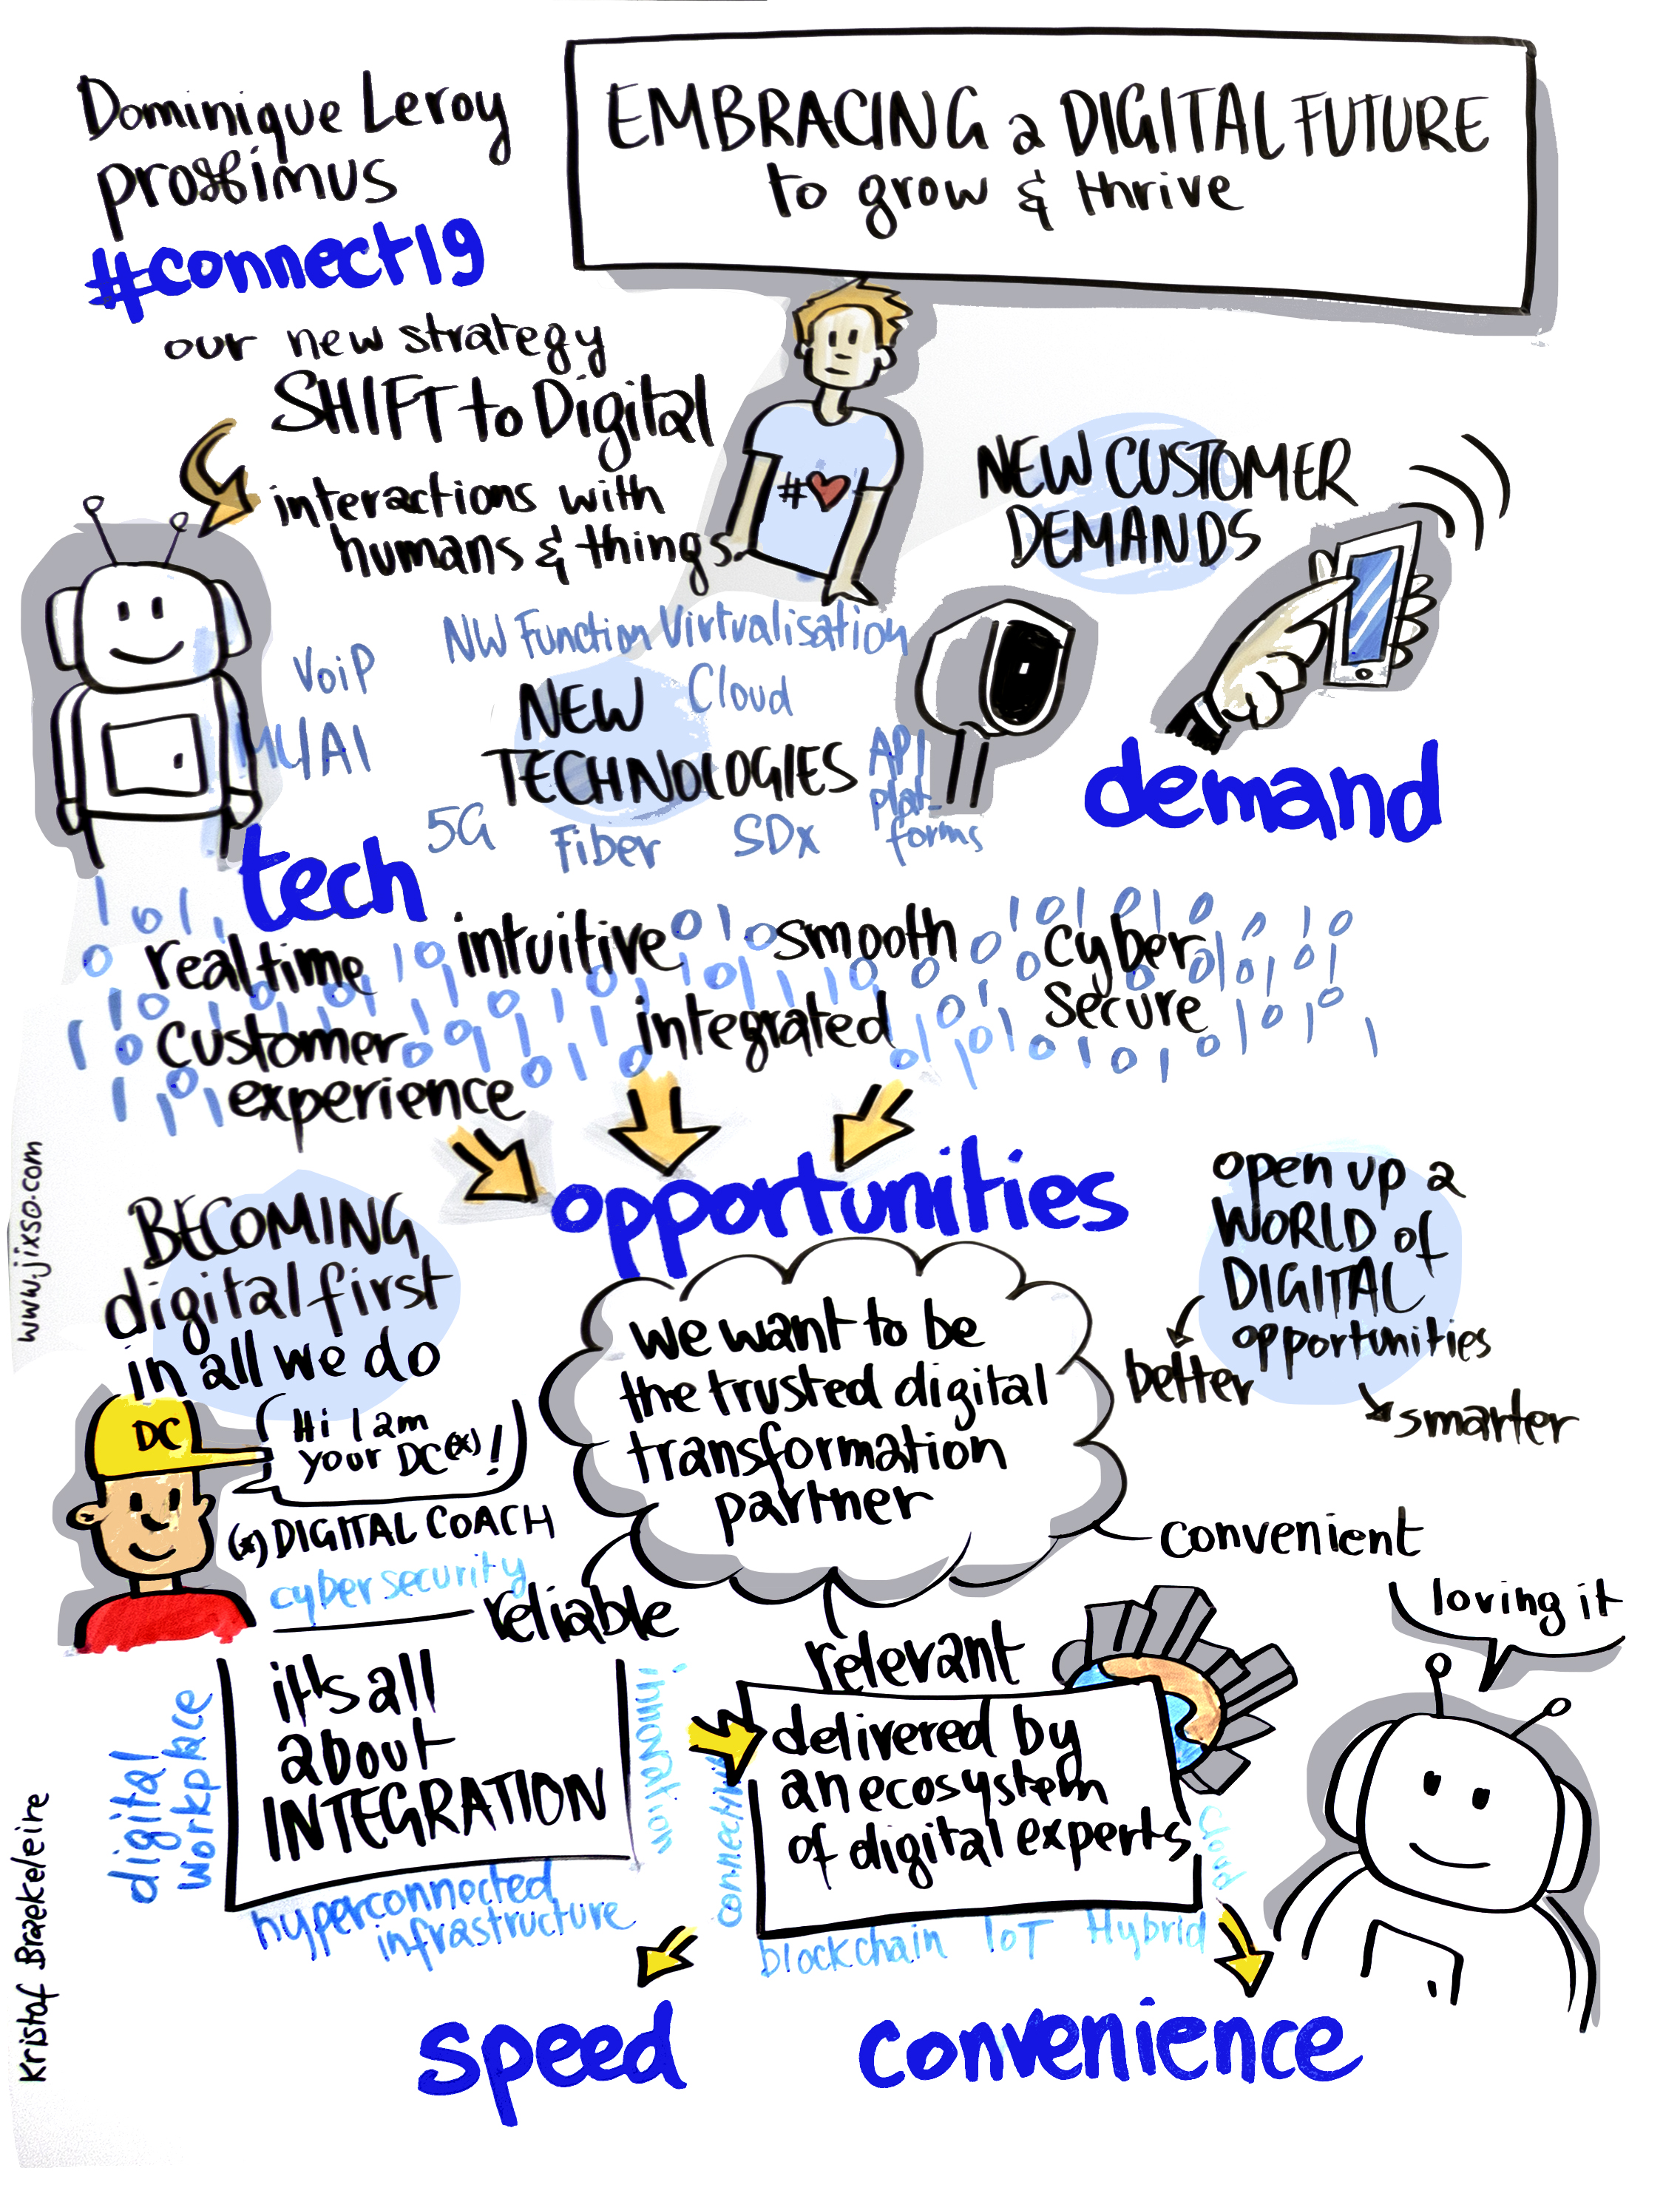 Dominique Leroy
proximus
#connect19
EMBRACING a DIGITAL FUTURE
to grow & thrive
our new strategy
SHIFT to Digital
interactions with
humans & things
#
NEW CUSTOMER
DEMANDS
NW Function Virtualisation
VoiP
Cloud
ML/AI
NEW
TECHNOLOGIES
API
plat-
forms
5G
Fiber
SDx
tech
demand
real time
intuitive
smooth
cyber
secure
customer
experience
integrated
opportunities
BECOMING
digital first
in all we do
open up a
WORLD of
DIGITAL
opportunities
better
smarter
we want to be
the trusted digital
transformation
partner
DC
Hi I am
your DC(*)!
(*) DIGITAL COACH
cybersecurity
reliable
relevant
convenient
loving it
it's all
about
INTEGRATION
digital
workplace
innovation
hyperconnected
infrastructure
delivered by
an ecosystem
of digital experts
cloud
blockchain IoT Hybrid
speed
convenience
www.jixso.com
Kristof Braekeleire